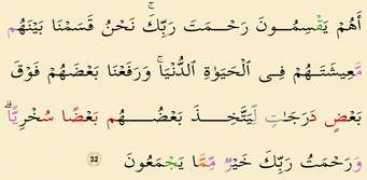 أَهُمْ يَقْسِمُونَ رَحْمَتَ رَبِّكَ ۚ نَحْنُ قَسَمْنَا بَيْنَهُم
مَّعِيشَتَهُمْ فِى الْحَيَوٰةِ الدُّنْيَا ۚ وَرَفَعْنَا بَعْضَهُمْ فَوْقَ
بَعْضٍ دَرَجَـٰتٍ لِّيَتَّخِذَ بَعْضُهُم بَعْضًا سُخْرِيًّا ۗ
وَرَحْمَتُ رَبِّكَ خَيْرٌ مِّمَّا يَجْمَعُونَ 32